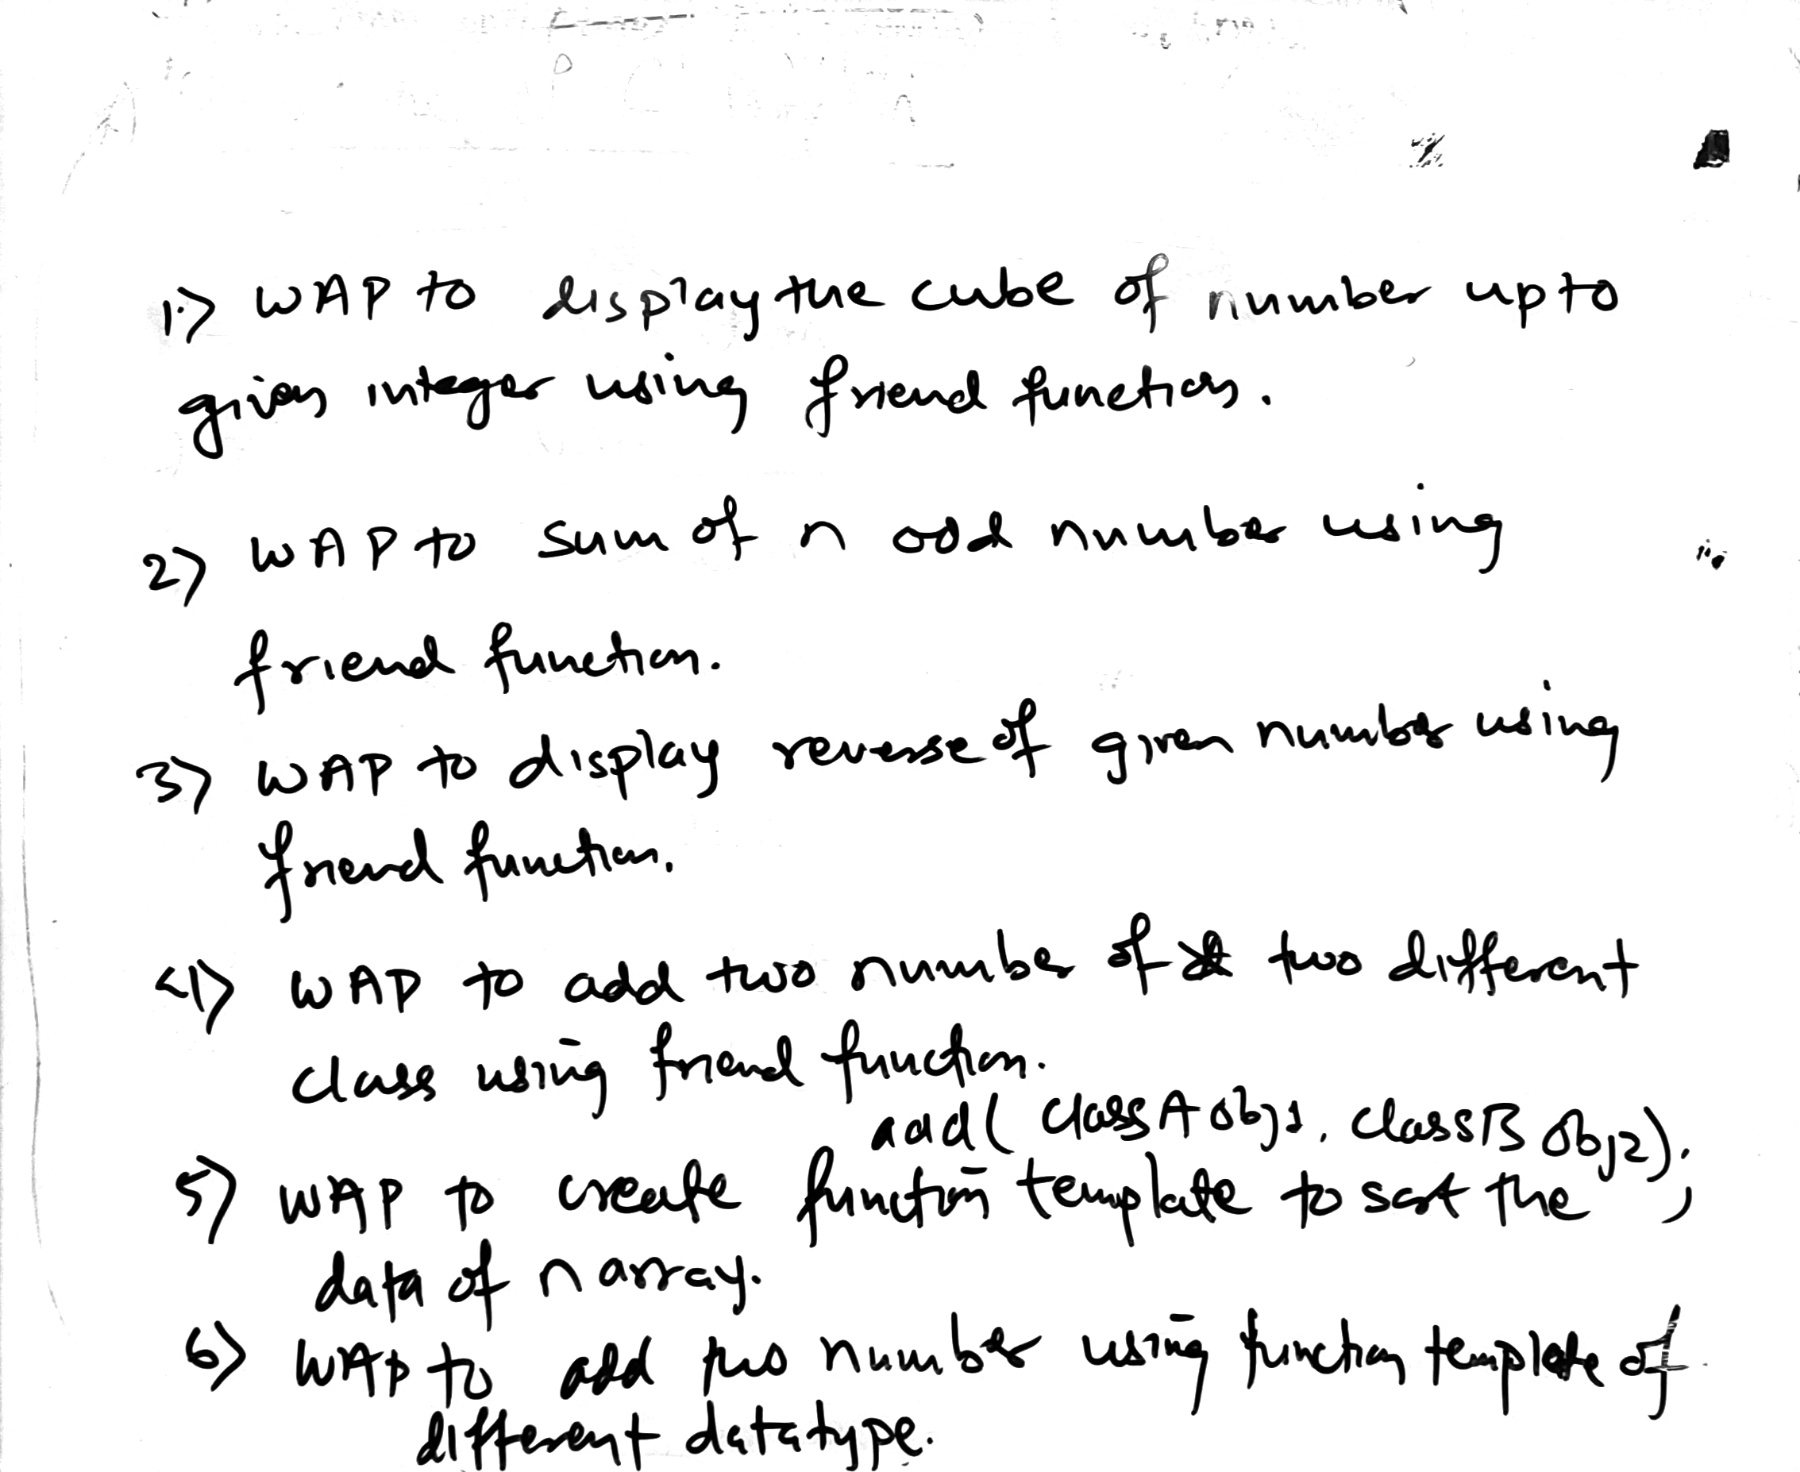 1.) WAP to display the cube of number upto
given integer using friend function.
2) WAP to sum of n odd number using
friend function.
3) WAP to display reverse of given number using
friend function.
4) WAP to add two number of two different
class using friend function.
add( classA obj1, classB obj2);
5) WAP to create function template to sort the
data of n array.
6) WAP to add two number using function template of
different datatype.